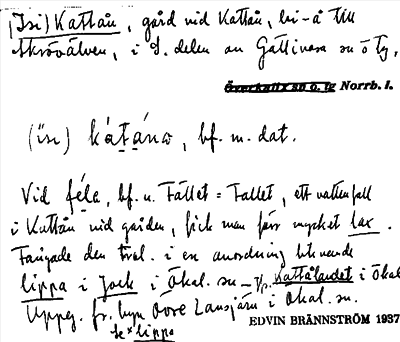 (Isi) Kattån, gård vid Kattån, bi-å till
Skrövälven, i S. delen av Gällivare sn o tg,
Överkalix sn o. tg Norrb. l.
(isi) kátánω, bf. m. dat.
Vid féle, bf. u. Fället = Fallet, ett vattenfall
i Kattån vid gården, fick man förr mycket lax.
Fångade den träl. i en anordning liknande
lippa i Jock i Ökal. sn – Kattålandet i Ökal
Uppg. fr. byn Övre Lansjärv i Ökal. sn.
Se x lippa
EDVIN BRÄNNSTRÖM 1937